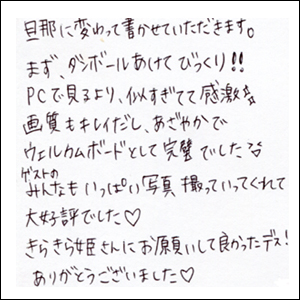 旦那に変わって書かせていただきます。
まず、ダンボールあけてびっくり!!
PCで見るより、似すぎてて感激☆
画質もキレイだし、あざやかで
ウェルカムボードとして完璧でした
ゲストの
みんなもいっぱい写真撮っていってくれて
大好評でした♡
きらきら姫さんにお願いして良かったデス!
ありがとうございました♡